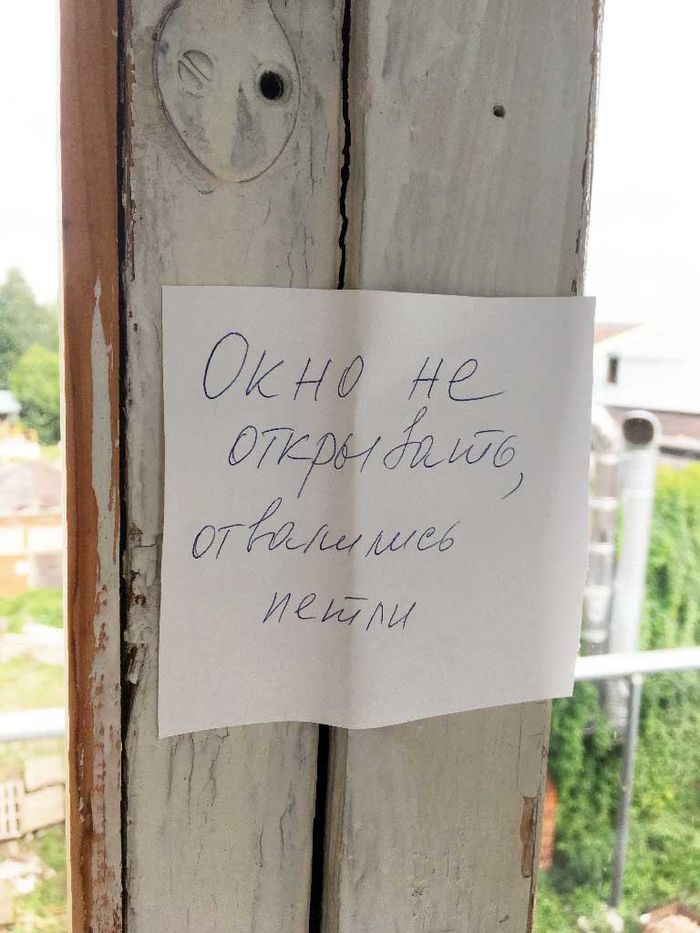 Окно не
открывать,
отвалились
петли